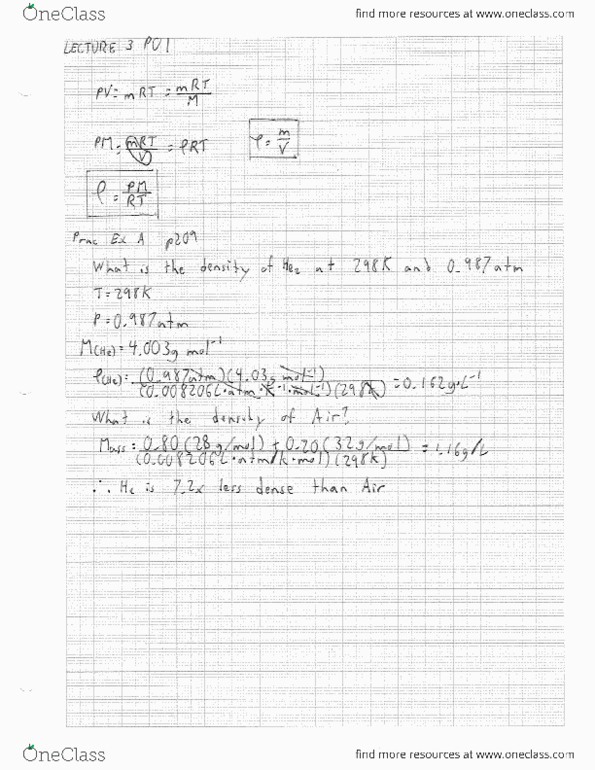 OneClass find more resources at www.oneclass.com
LECTURE 3 P01
PV = mRT = mRT/M
PM = mRT/V = ρRT ρ = m/V
ρ = PM/RT
Prac Ex A p209
What is the density of He₂ at 298K and 0.987atm
T = 298K
P = 0.987atm
M(He) = 4.003g mol⁻¹
ρ(He) = (0.987atm)(4.03g mol⁻¹)/(0.008206L·atm·K⁻¹·mol⁻¹)(298K) = 0.162g·L⁻¹
What is the density of Air?
Mass = 0.80(28g/mol) + 0.20(32g/mol)/(0.008206L·atm/K·mol)(298K) = 1.16g/L
∴ He is 7.2x less dense than Air
OneClass find more resources at www.oneclass.com